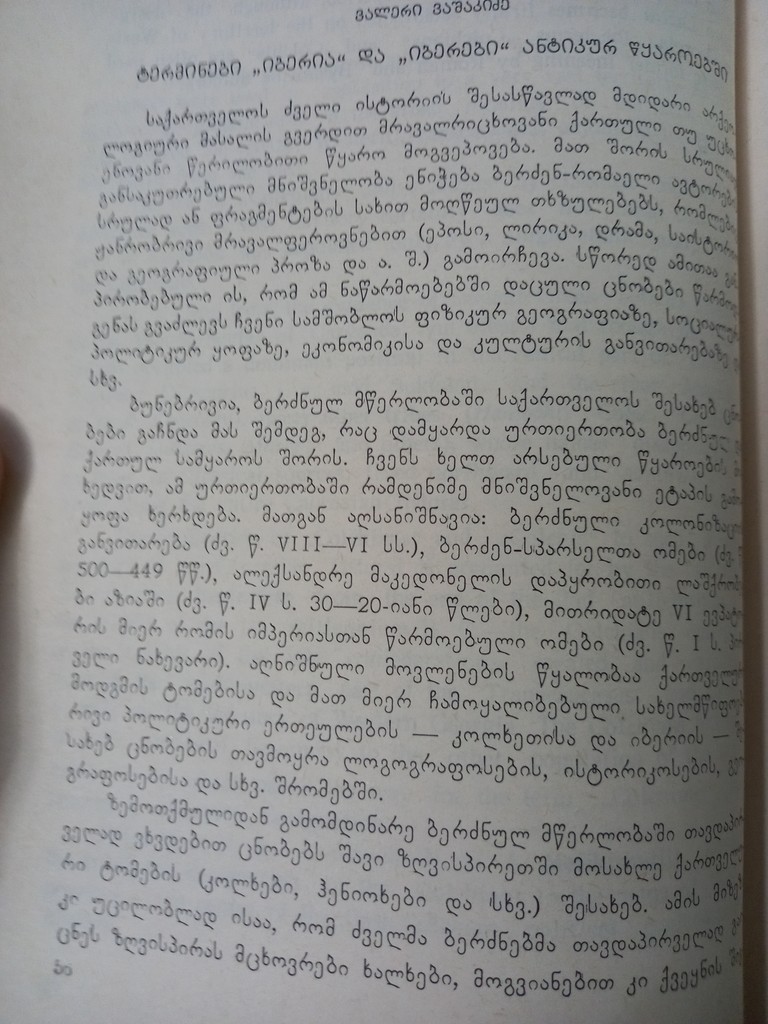 ვალერი ვაშაკიძე
ტერმინები „იბერია“ და „იბერები“ ანტიკურ წყაროებში
საქართველოს ძველი ისტორიის შესასწავლად მდიდარი
ლოგიური მასალის გვერდით მრავალრიცხოვანი ქართული თუ
ენოვანი წერილობითი წყარო მოგვეპოვება. მათ შორის
განსაკუთრებული მნიშვნელობა ენიჭება ბერძენ-რომაელი
სრულად ან ფრაგმენტების სახით მოღწეულ თხზულებებს,
ჟანრობრივი მრავალფეროვნებით (ეპოსი, ლირიკა, დრამა,
და გეოგრაფიული პროზა და ა. შ.) გამოირჩევა. სწორედ ამითაა
პირობებული ის, რომ ამ ნაწარმოებებში დაცული ცნობები
გენას გვაძლევს ჩვენი სამშობლოს ფიზიკურ გეოგრაფიაზე,
პოლიტიკურ ყოფაზე, ეკონომიკისა და კულტურის განვითარებაზე
სხვ.
ბუნებრივია, ბერძნულ მწერლობაში საქართველოს შესახებ
ბები გაჩნდა მას შემდეგ, რაც დამყარდა ურთიერთობა
ქართულ სამყაროს შორის. ჩვენს ხელთ არსებული წყაროების
ხედვით, ამ ურთიერთობაში რამდენიმე მნიშვნელოვანი ეტაპის
ყოფა ხერხდება. მათგან აღსანიშნავია: ბერძნული
განვითარება (ძვ. წ. VIII—VI სს.), ბერძენ-სპარსელთა ომები (ძვ.
500—449 წწ.), ალექსანდრე მაკედონელის დაპყრობითი
ბი აზიაში (ძვ. წ. IV ს. 30—20-იანი წლები), მითრიდატე VI
რის მიერ რომის იმპერიასთან წარმოებული ომები (ძვ. წ. I ს.
ველი ნახევარი). აღნიშნული მოვლენების წყალობაა
მოდგმის ტომებისა და მათ მიერ ჩამოყალიბებული
რივი პოლიტიკური ერთეულების — კოლხეთისა და იბერიის —
სახებ ცნობების თავმოყრა ლოგოგრაფოსების, ისტორიკოსების,
გრაფოსებისა და სხვ. შრომებში.
ზემოთქმულიდან გამომდინარე ბერძნულ მწერლობაში
ველად ვხვდებით ცნობებს შავი ზღვისპირეთში მოსახლე
რი ტომების (კოლხები, ჰენიოხები და სხვ.) შესახებ. ამის
კი უცილობლად ისაა, რომ ძველმა ბერძნებმა თავდაპირველად
ცნეს ზღვისპირას მცხოვრები ხალხები, მოგვიანებით კი ქვეყნის